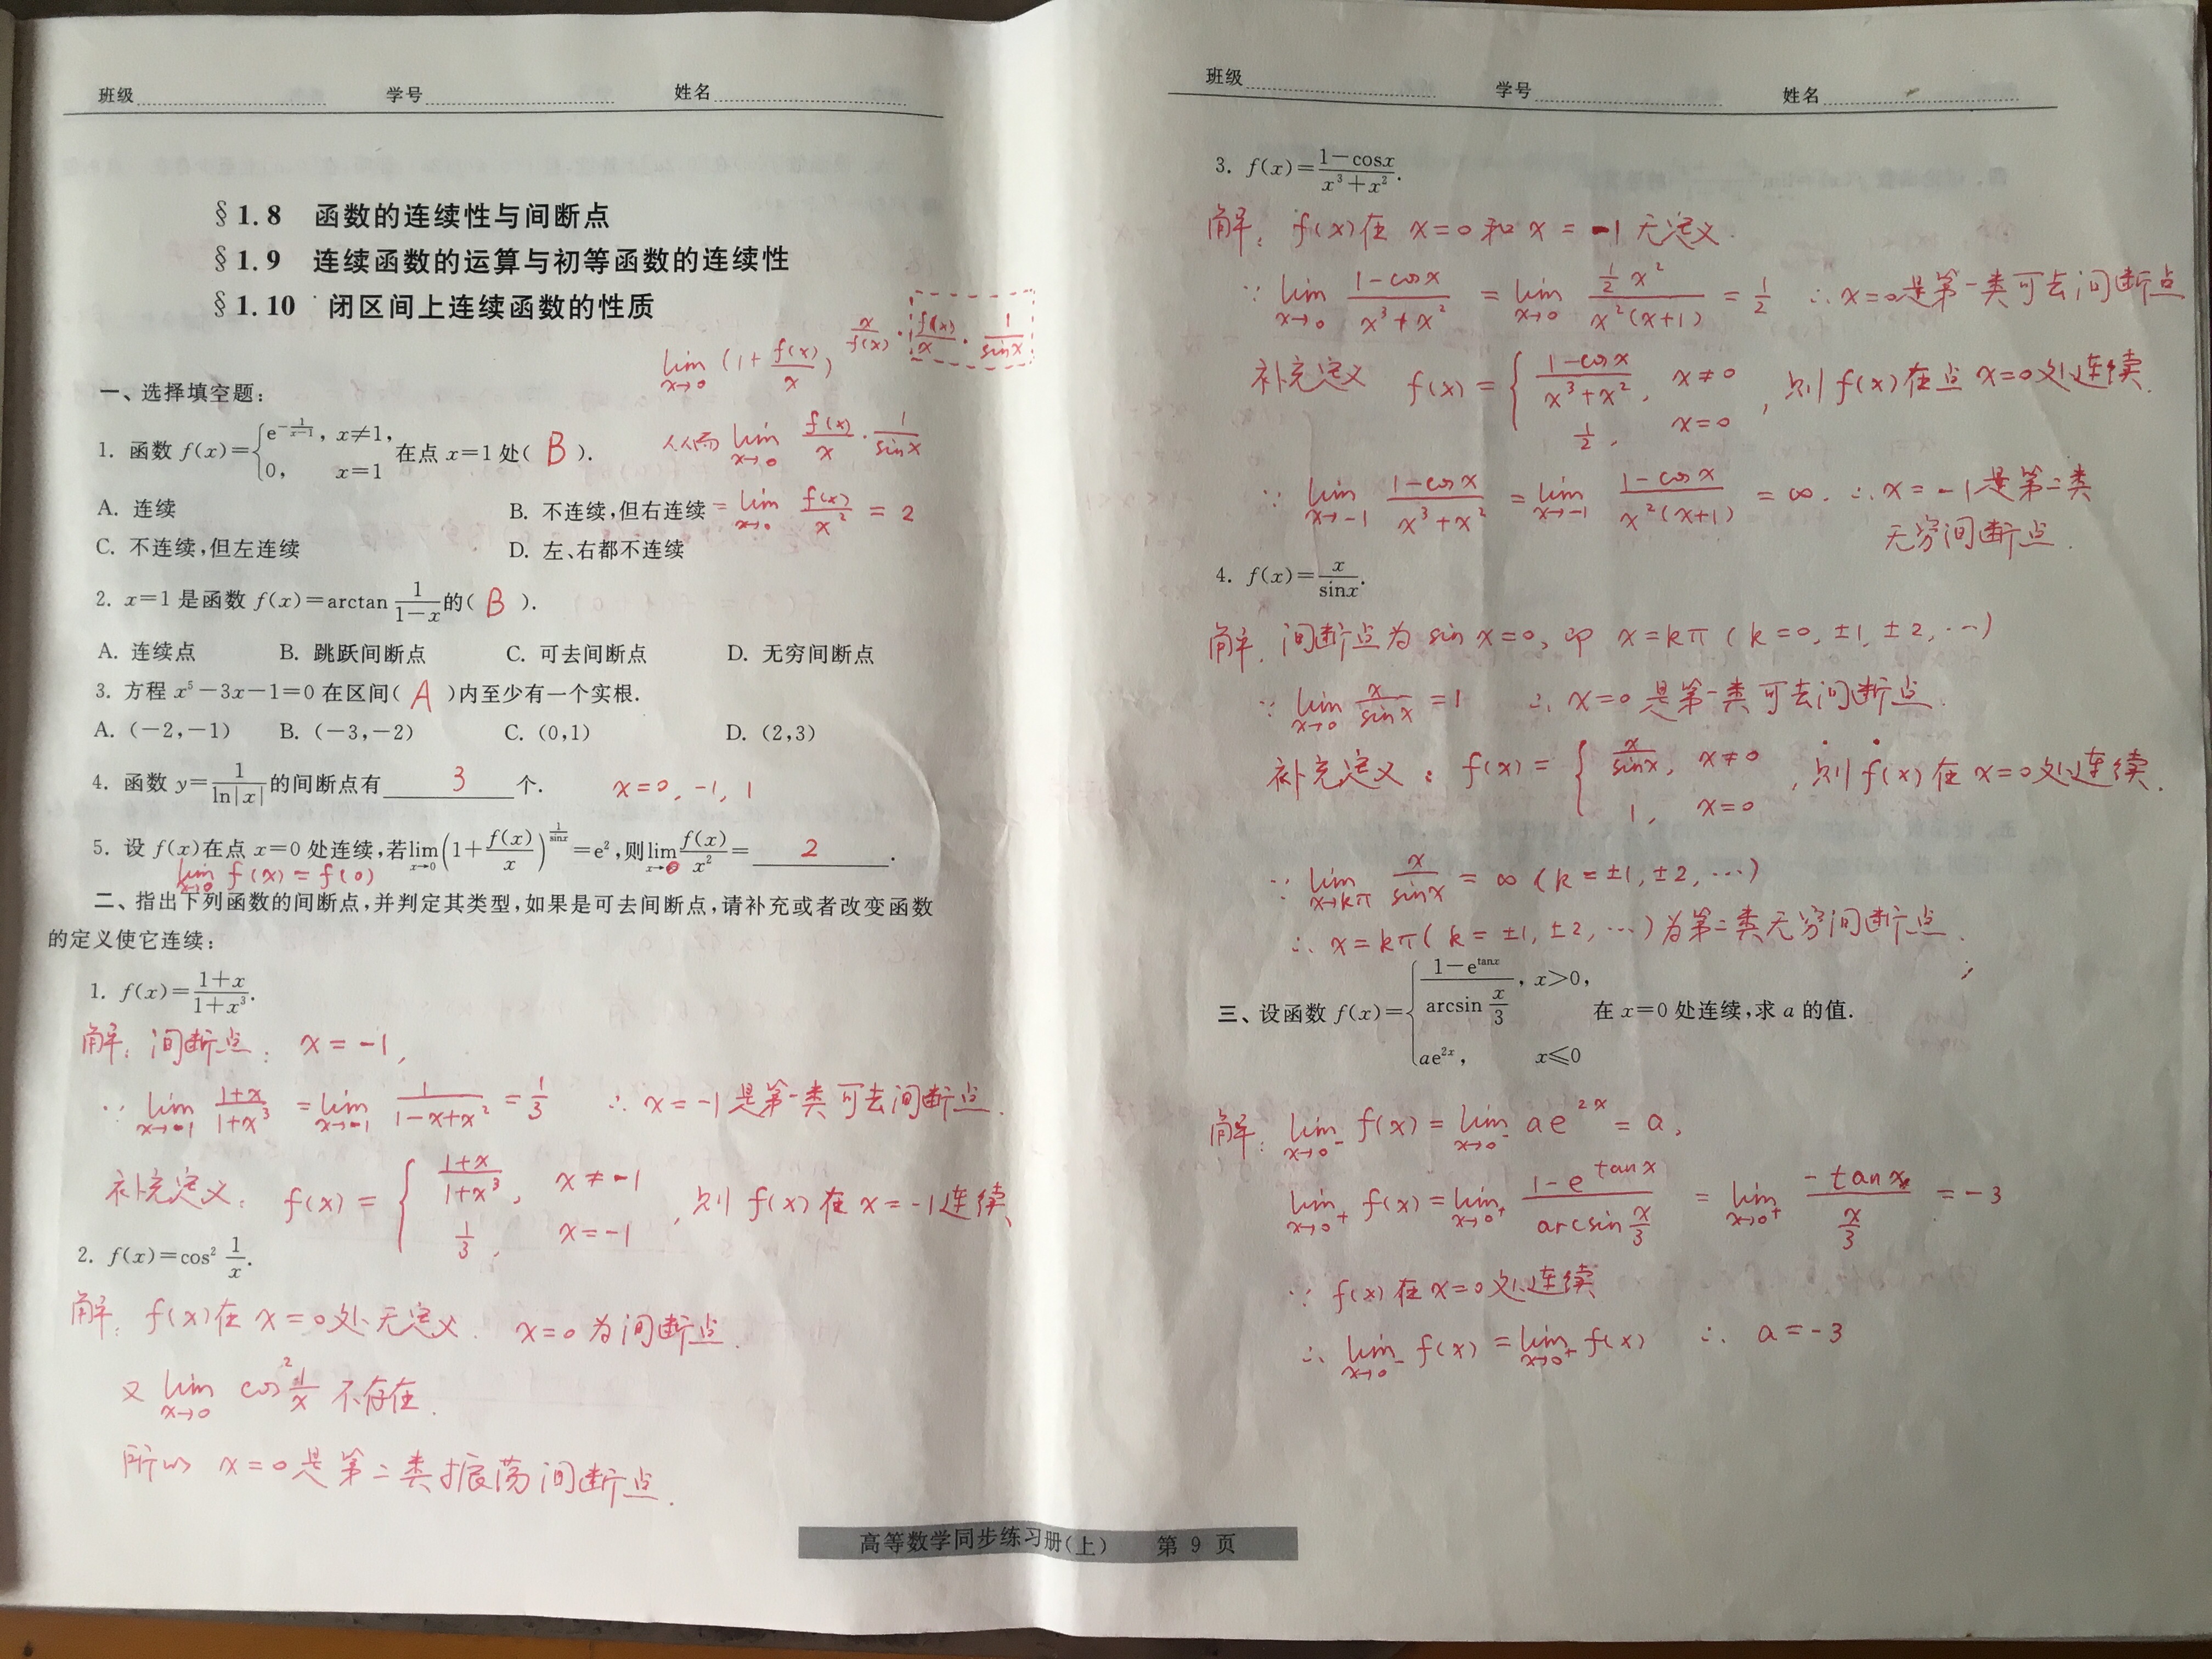 班级 学号 姓名
§1.8 函数的连续性与间断点
§1.9 连续函数的运算与初等函数的连续性
§1.10 闭区间上连续函数的性质
lim x→0 (1+f(x)/x)^(x/f(x)·f(x)/x·1/sinx)
一、选择填空题:
1. 函数 f(x)={e^(-1/(x-1)), x≠1, 0, x=1 在点 x=1 处( B ).
从而 lim x→0 f(x)/x · 1/sinx
A. 连续 B. 不连续,但右连续
= lim x→0 f(x)/x² = 2
C. 不连续,但左连续 D. 左、右都不连续
2. x=1 是函数 f(x)=arctan 1/(1-x) 的( B ).
A. 连续点 B. 跳跃间断点 C. 可去间断点 D. 无穷间断点
3. 方程 x⁵-3x-1=0 在区间( A )内至少有一个实根.
A. (-2,-1) B. (-3,-2) C. (0,1) D. (2,3)
4. 函数 y=1/ln|x| 的间断点有 3 个. x=0, -1, 1
5. 设 f(x)在点 x=0 处连续,若lim x→0 (1+f(x)/x)^(1/sinx)=e²,则lim x→0 f(x)/x²= 2 .
lim x→0 f(x) = f(0)
二、指出下列函数的间断点,并判定其类型,如果是可去间断点,请补充或者改变函数
的定义使它连续:
1. f(x)=(1+x)/(1+x³).
解: 间断点: x=-1,
∵ lim x→-1 (1+x)/(1+x³) = lim x→-1 1/(1-x+x²) = 1/3 ∴ x=-1是第一类可去间断点.
补充定义: f(x)={(1+x)/(1+x³), x≠-1 1/3, x=-1 , 则 f(x)在 x=-1连续.
2. f(x)=cos² 1/x.
解: f(x)在 x=0处无定义. x=0为间断点.
又 lim x→0 cos² 1/x 不存在.
所以 x=0是第二类振荡间断点.
班级 学号 姓名
3. f(x)=(1-cosx)/(x³+x²).
解: f(x)在 x=0和x=-1无定义.
∵ lim x→0 (1-cosx)/(x³+x²) = lim x→0 (1/2 x²)/(x²(x+1)) = 1/2 ∴ x=0是第一类可去间断点
补充定义 f(x)={(1-cosx)/(x³+x²), x≠0 1/2, x=0 , 则f(x)在点 x=0处连续.
∵ lim x→-1 (1-cosx)/(x³+x²) = lim x→-1 (1-cosx)/(x²(x+1)) = ∞. ∴ x=-1是第二类
无穷间断点.
4. f(x)=x/sinx.
解: 间断点为 sinx=0, 即 x=kπ (k=0, ±1, ±2, …)
∵ lim x→0 x/sinx = 1 ∴ x=0是第一类可去间断点.
补充定义: f(x)={x/sinx, x≠0 1, x=0 , 则f(x)在x=0处连续.
∵ lim x→kπ x/sinx = ∞ (k=±1, ±2, …)
∴ x=kπ(k=±1, ±2, …)为第二类无穷间断点.
三、设函数 f(x)={(1-e^tanx)/(arcsin x/3), x>0, ae^2x, x≤0 在 x=0 处连续,求 a 的值.
解: lim x→0⁻ f(x) = lim x→0⁻ ae^2x = a,
lim x→0⁺ f(x) = lim x→0⁺ (1-e^tanx)/(arcsin x/3) = lim x→0⁺ (-tanx)/(x/3) = -3
∵ f(x)在x=0处连续
∴ lim x→0⁻ f(x) = lim x→0⁺ f(x) ∴ a=-3
高等数学同步练习册(上) 第 9 页